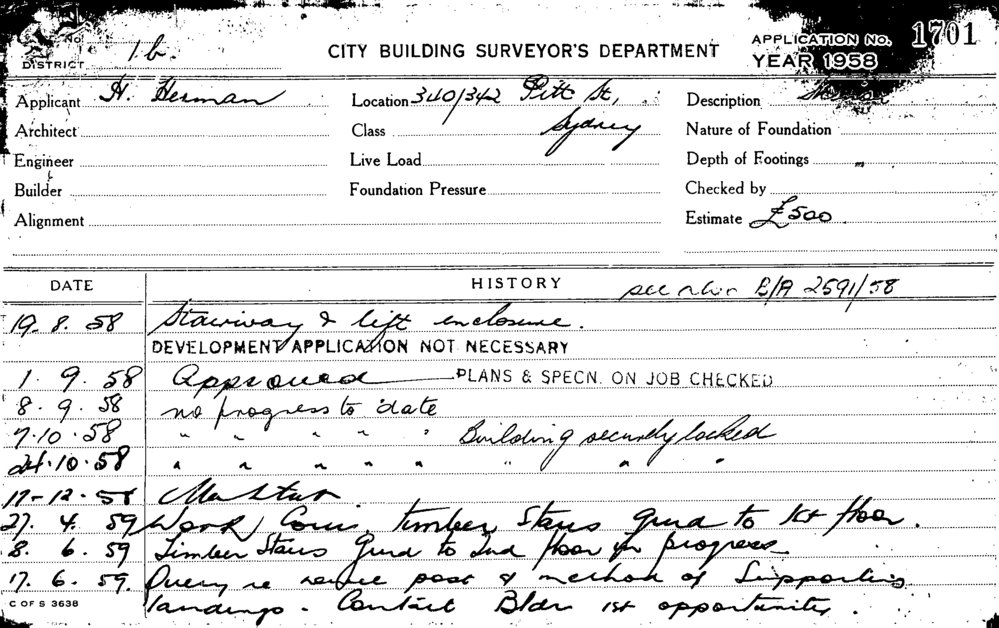 No. 1b. CITY BUILDING SURVEYOR'S DEPARTMENT APPLICATION NO. 1701
DISTRICT YEAR 1958
Applicant H. Herman Location 340/342 Pitt St, Description
Architect Class Sydney Nature of Foundation
Engineer Live Load Depth of Footings
Builder Foundation Pressure Checked by
Alignment Estimate £500
DATE HISTORY see also B/A 2591/58
19. 8. 58 Stairway & lift enclosure.
DEVELOPMENT APPLICATION NOT NECESSARY
1. 9. 58 Approved PLANS & SPECN. ON JOB CHECKED
8. 9. 58 no progress to date
7.10.58 " " " " " Building securely locked
24.10.58 " " " " " " " "
17-12-58
27. 4. 59 Work Com. timber Stairs Grnd to 1st floor.
8. 6. 59 Timber Stairs Grnd to 2nd floor in progress
17. 6. 59. Query re post & method of Supporting
C OF S 3638 landings. Contact Bldr 1st opportunity.